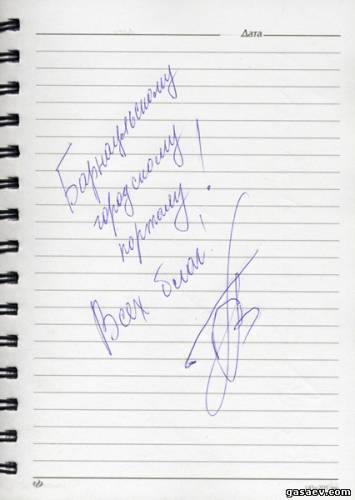 Дата
Барнаульскому
городскому
порталу!
Всех благ!
gasaev.com